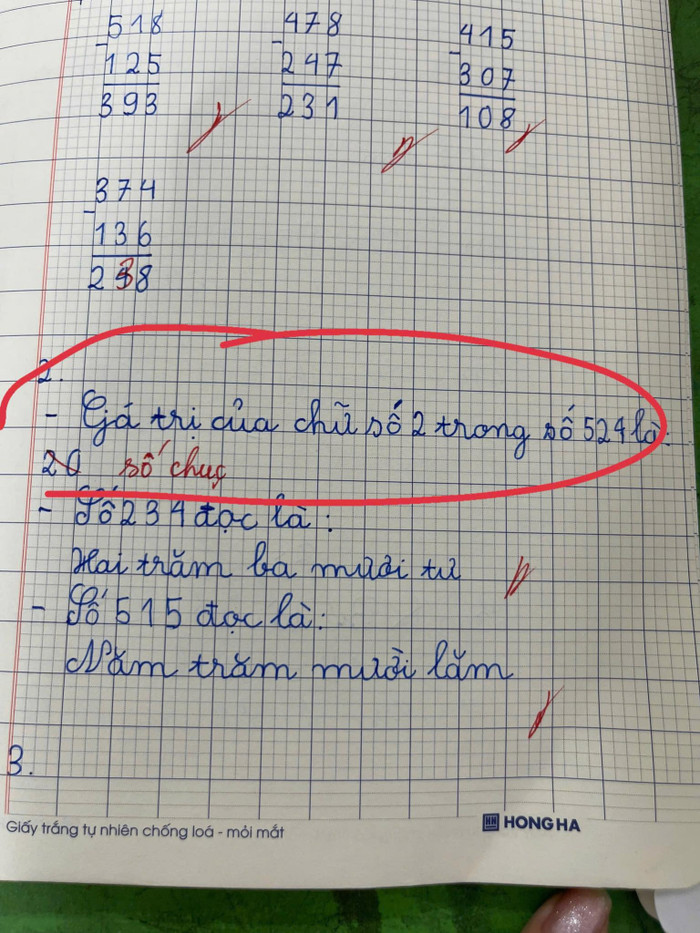 518
-
125
393
478
-
247
231
415
-
307
108
374
-
136
238
2.
- Gá trị của chữ số 2 trong số 524 là:
20 số chục
- Số 234 đọc là:
Hai trăm ba mươi tư
- Số 515 đọc là:
Năm trăm mười lăm
3.
Giấy trắng tự nhiên chống loá - mỏi mắt
HH HONG HA